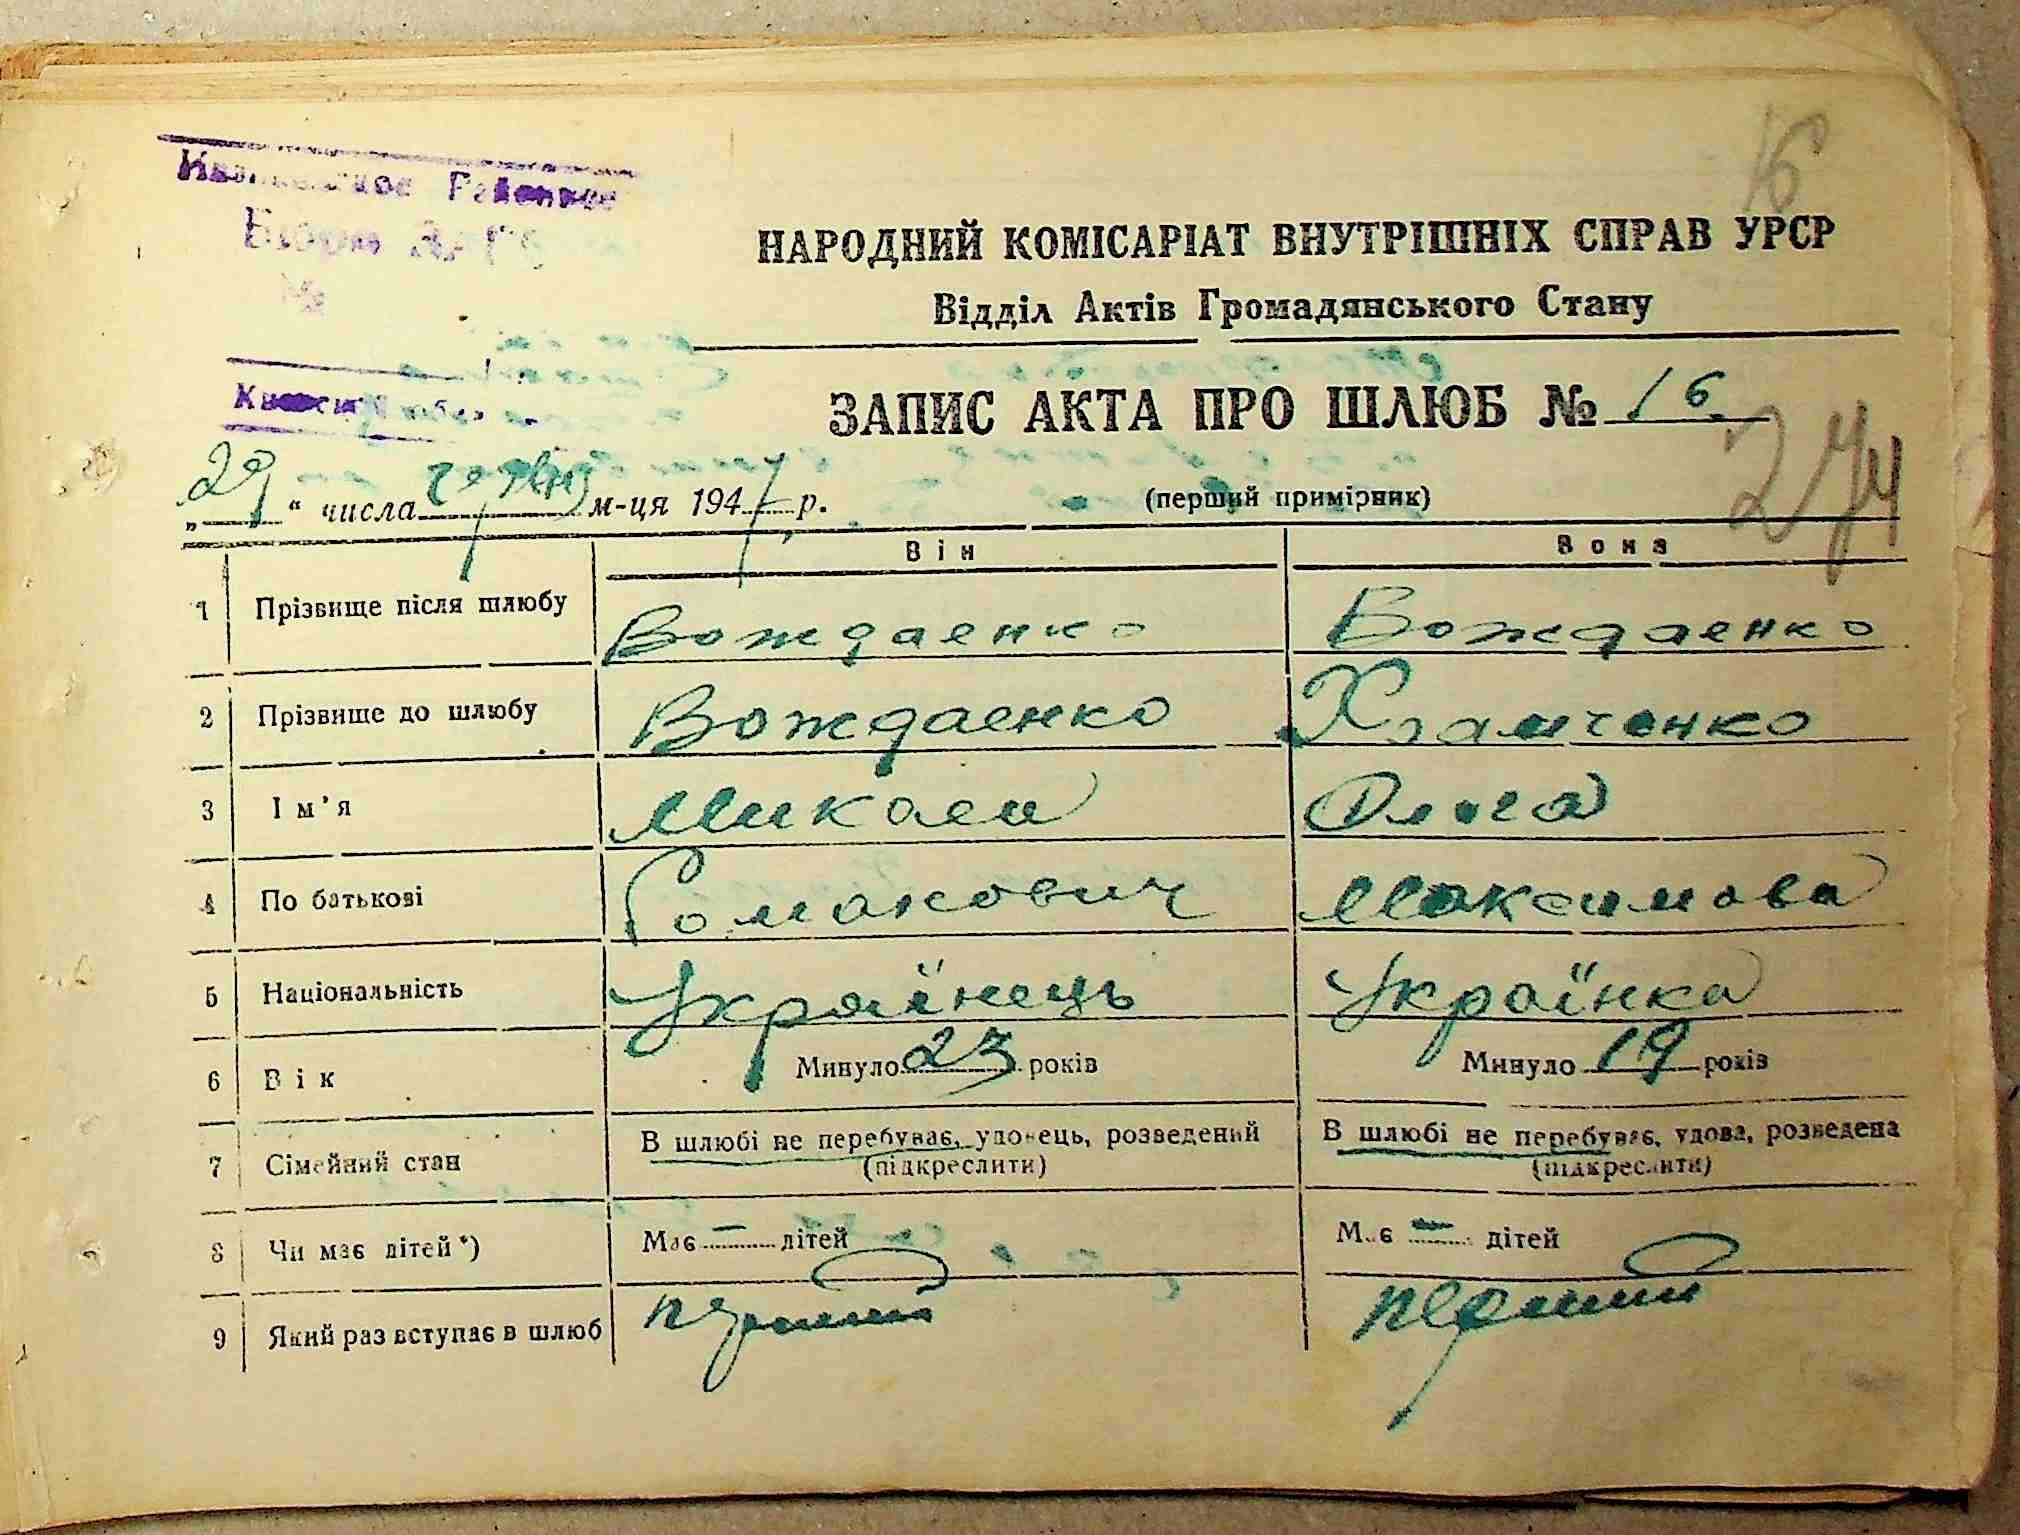 16
Районное
Бюро ЗАГС
№
НАРОДНИЙ КОМІСАРІАТ ВНУТРІШНІХ СПРАВ УРСР
Відділ Актів Громадянського Стану
ЗАПИС АКТА ПРО ШЛЮБ № 16
274
„29“ числа червня м-ця 1947 р.
(перший примірник)
Він Вона
1 Прізвище після шлюбу Вождаенко Вождаенко
2 Прізвище до шлюбу Вождаенко Храмченко
3 Ім'я Микола Ольга
4 По батькові Романович Максимова
5 Національність Українець Українка
6 Вік Минуло 23 років Минуло 19 років
7 Сімейний стан В шлюбі не перебуває, удовець, розведений (підкреслити) В шлюбі не перебуває, удова, розведена (підкреслити)
8 Чи має дітей*) Має — дітей Має — дітей
9 Який раз вступає в шлюб перший перший